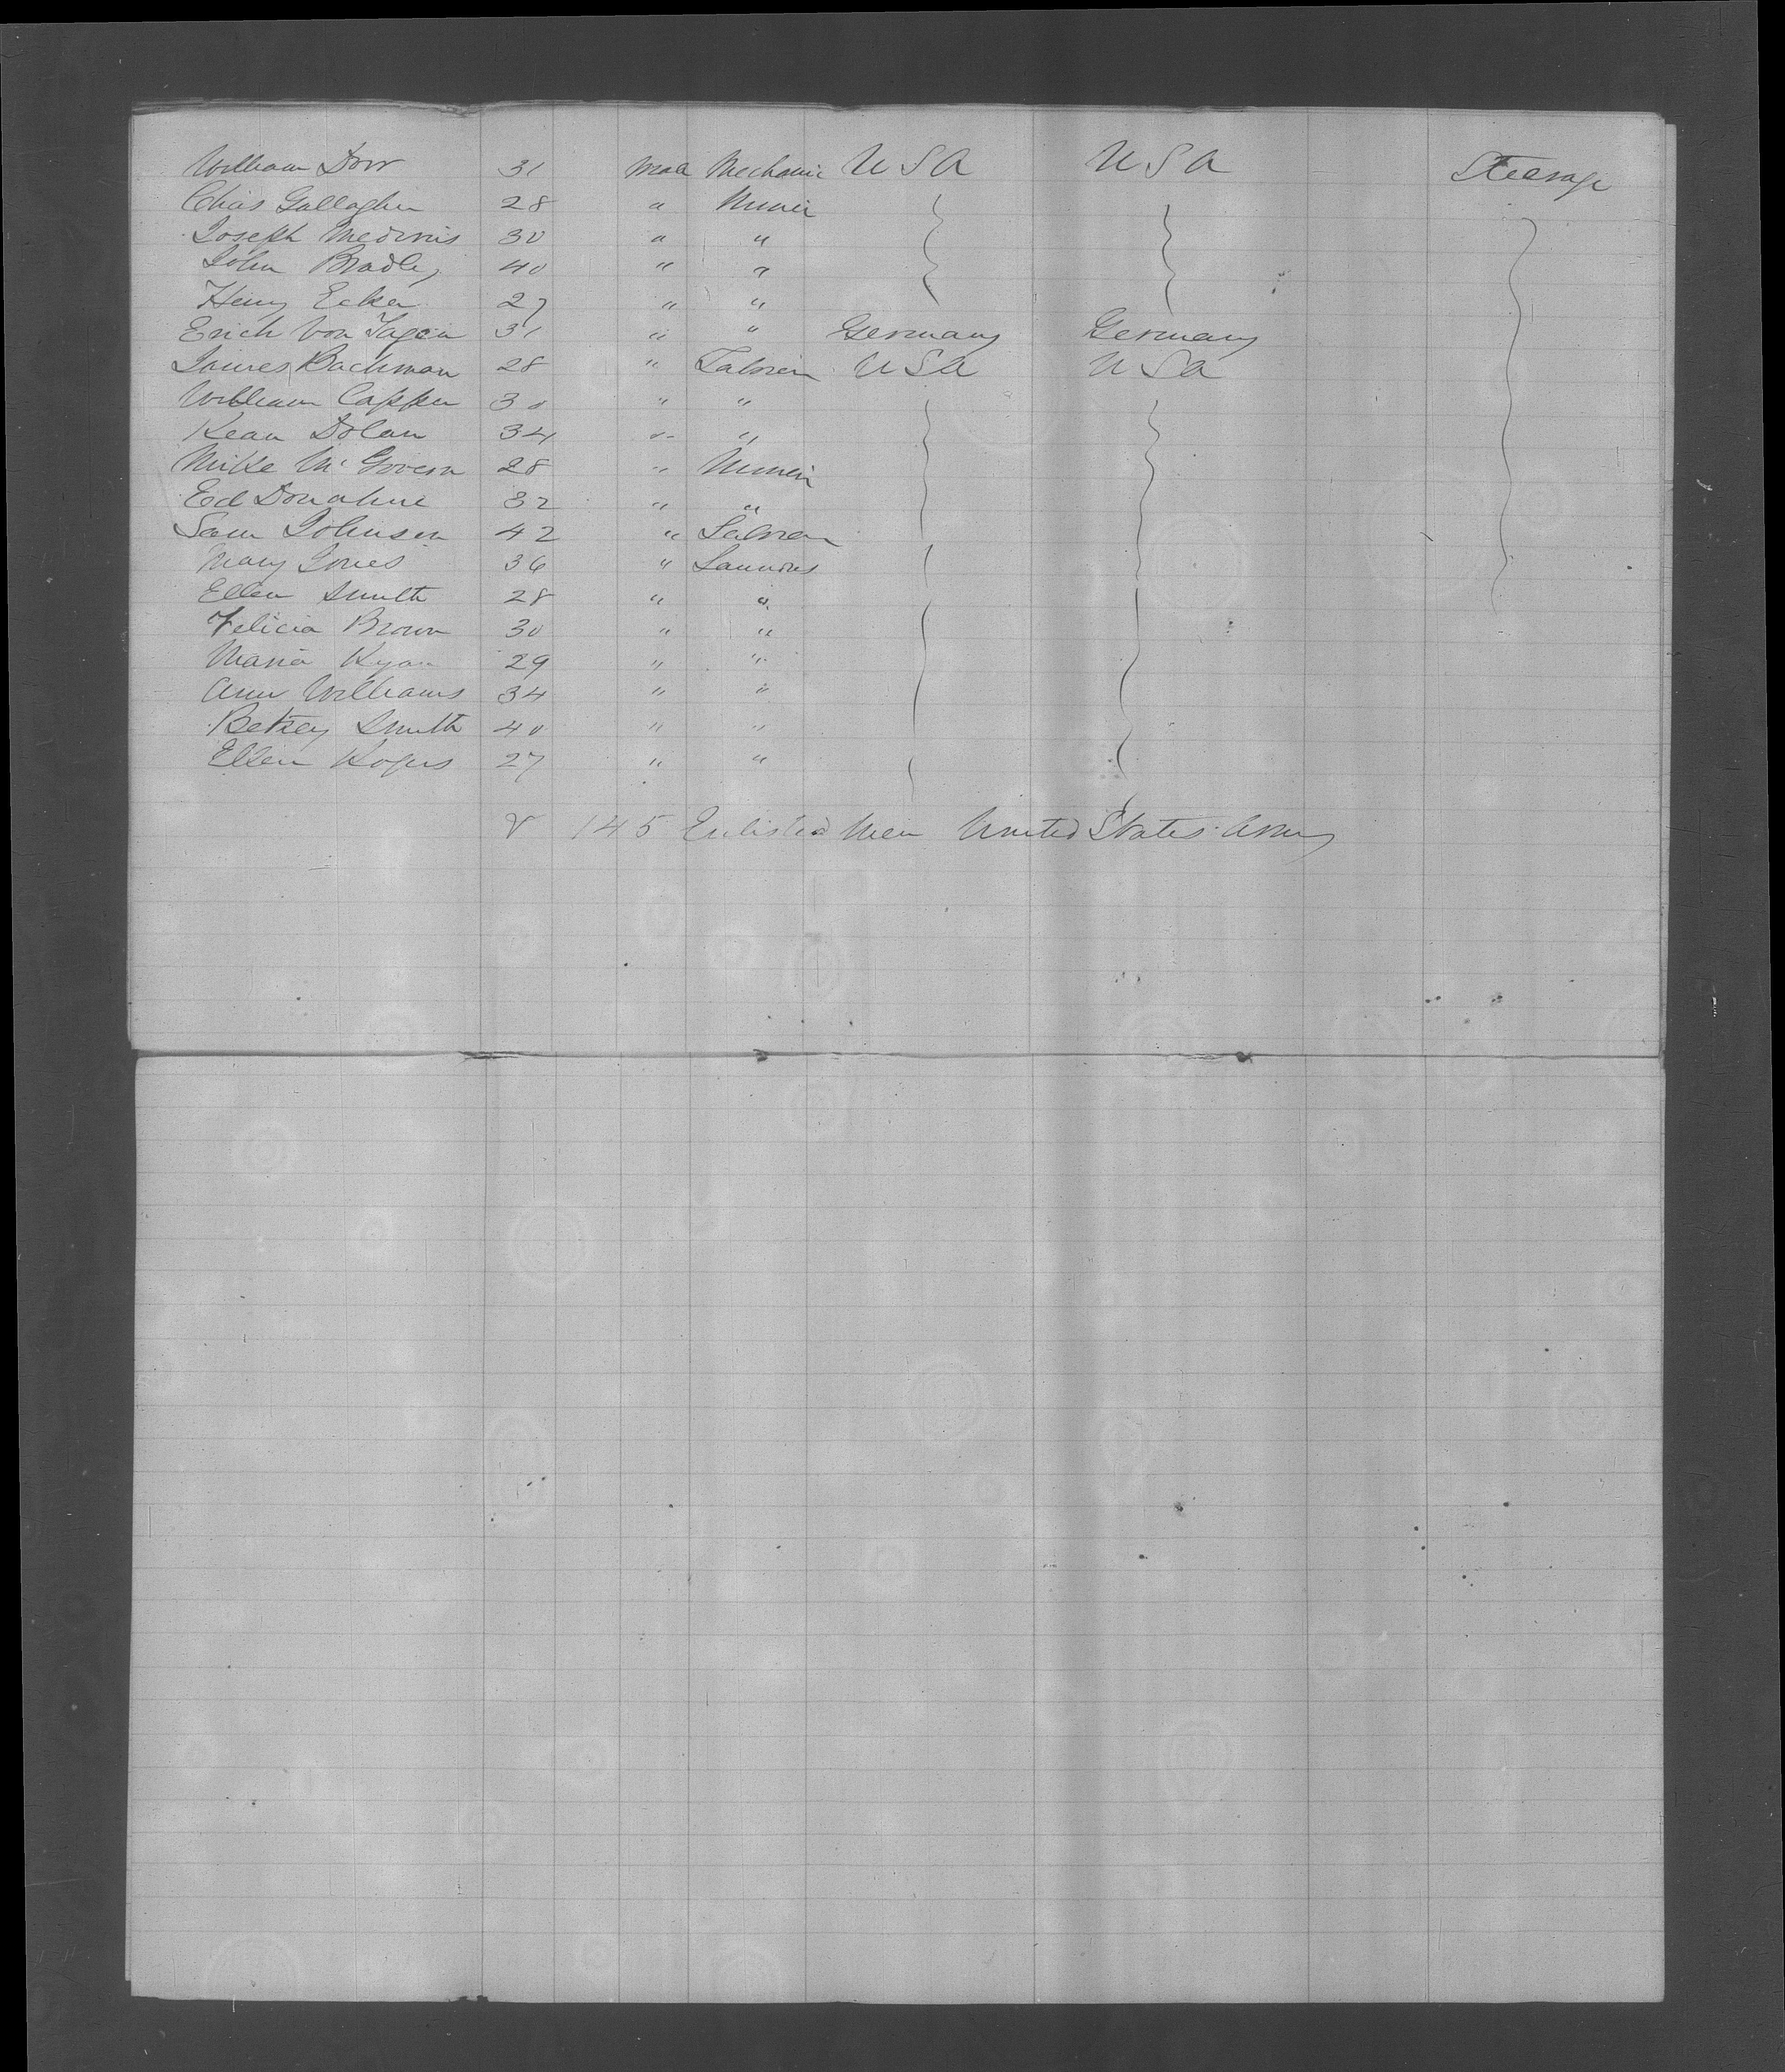 William Dorr 31 Male Mechanic USA USA Steerage
Chas Gallagher 28 " Miner
Joseph 30 " "
John Bradley 40 " "
Henry Ecker 27 " "
Erich Von 31 " " Germany Germany
James Bachman 28 " Laborer USA USA
William Capper 30 " "
Kean Dolan 34 " "
Mike McGovern 28 " Miner
Ed Donahue 32 " "
Sam Johnson 42 " Laborer
Mary Jones 36 "
Ellen Smith 28 " "
Felicia Brown 30 " "
Maria Ryan 29 " "
Ann Williams 34 " "
Betsey Smith 40 " "
Ellen Rogers 27 " "
145 Enlisted Men United States Army